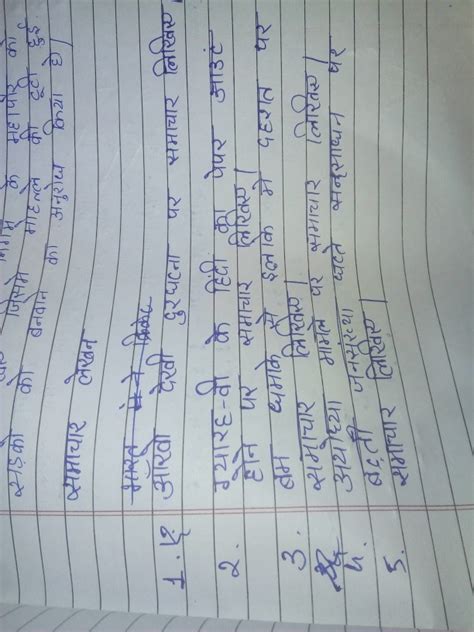 के महापौर को
सड़को की जिसमे मोहल्ले की टूटी हुई
बनवाने का अनुरोध किया है।
समाचार लेखन
भारत मे ने क्रिकेट
1. ऑखो देखी दुरघटना पर समाचार लिखिए
2. ग्यारहवी के हिंदी का पेपर आउट
होने पर समाचार लिखिए।
3. बम धमाके से इलाके मे दहशत पर
समाचार लिखिए।
4. अयोध्या मामले पर समाचार लिखिए।
5. बढ़ती जनसंख्या घटते संसाधन पर
समाचार लिखिए।